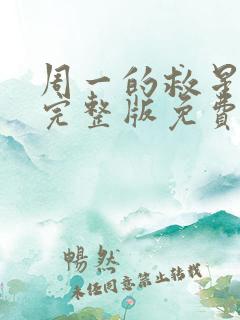 周一的救星
完整版免费
暢然
未经同意禁止转载